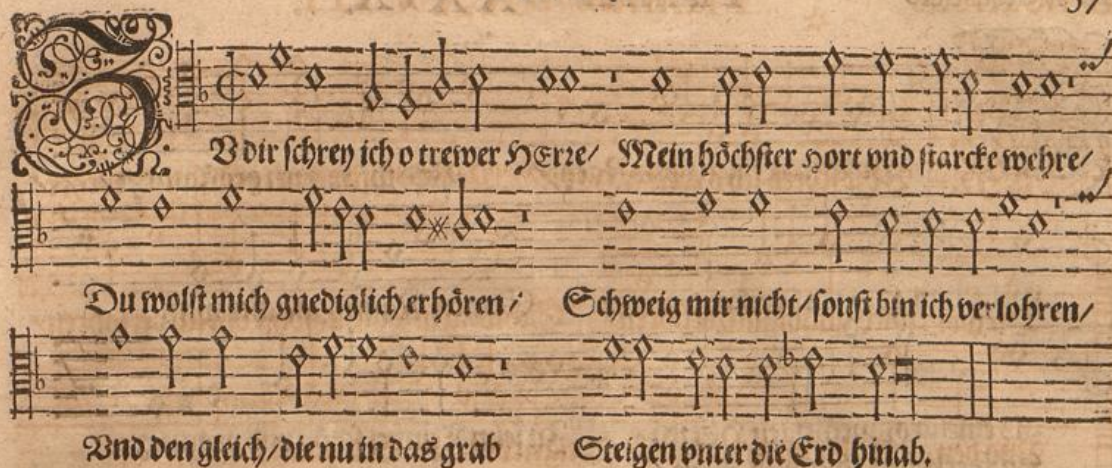 ZV dir schrey ich o trewer HErre/ Mein höchster Hort vnd starcke wehre/
Du wolst mich gnediglich erhören/ Schweig mir nicht/ sonst bin ich verlohren/
Vnd den gleich/ die nu in das grab Steigen vnter die Erd hinab.